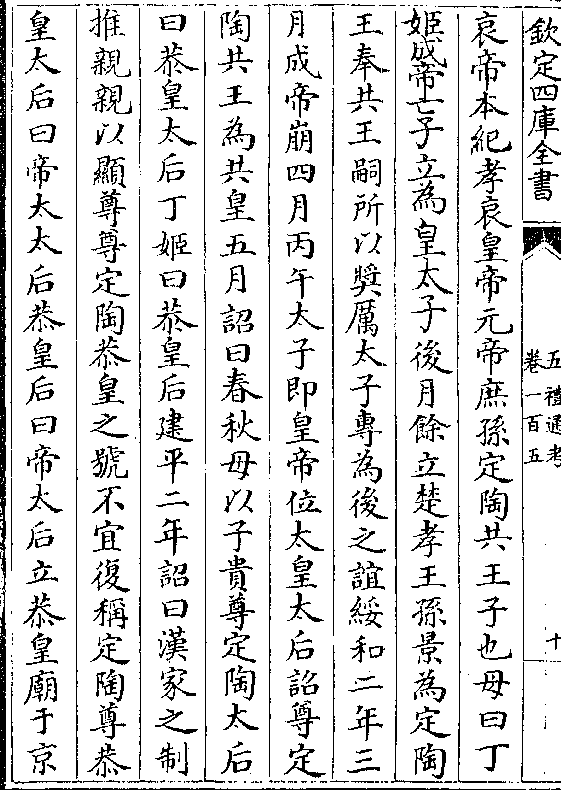 欽定四庫全書
五禮通考
卷一百五
十
哀帝本紀孝哀皇帝元帝庶孫定陶共王子也母曰丁
姬成帝亡子立為皇太子後月餘立楚孝王孫景為定陶
王奉共王嗣所以奬厲太子專為後之誼綏和二年三
月成帝崩四月丙午太子即皇帝位太皇太后詔尊定
陶共王為共皇五月詔曰春秋母以子貴尊定陶太后
曰恭皇太后丁姬曰恭皇后建平二年詔曰漢家之制
推親親以顯尊尊定陶恭皇之號不宜復稱定陶尊恭
皇太后曰帝太太后恭皇后曰帝太后立恭皇廟于京